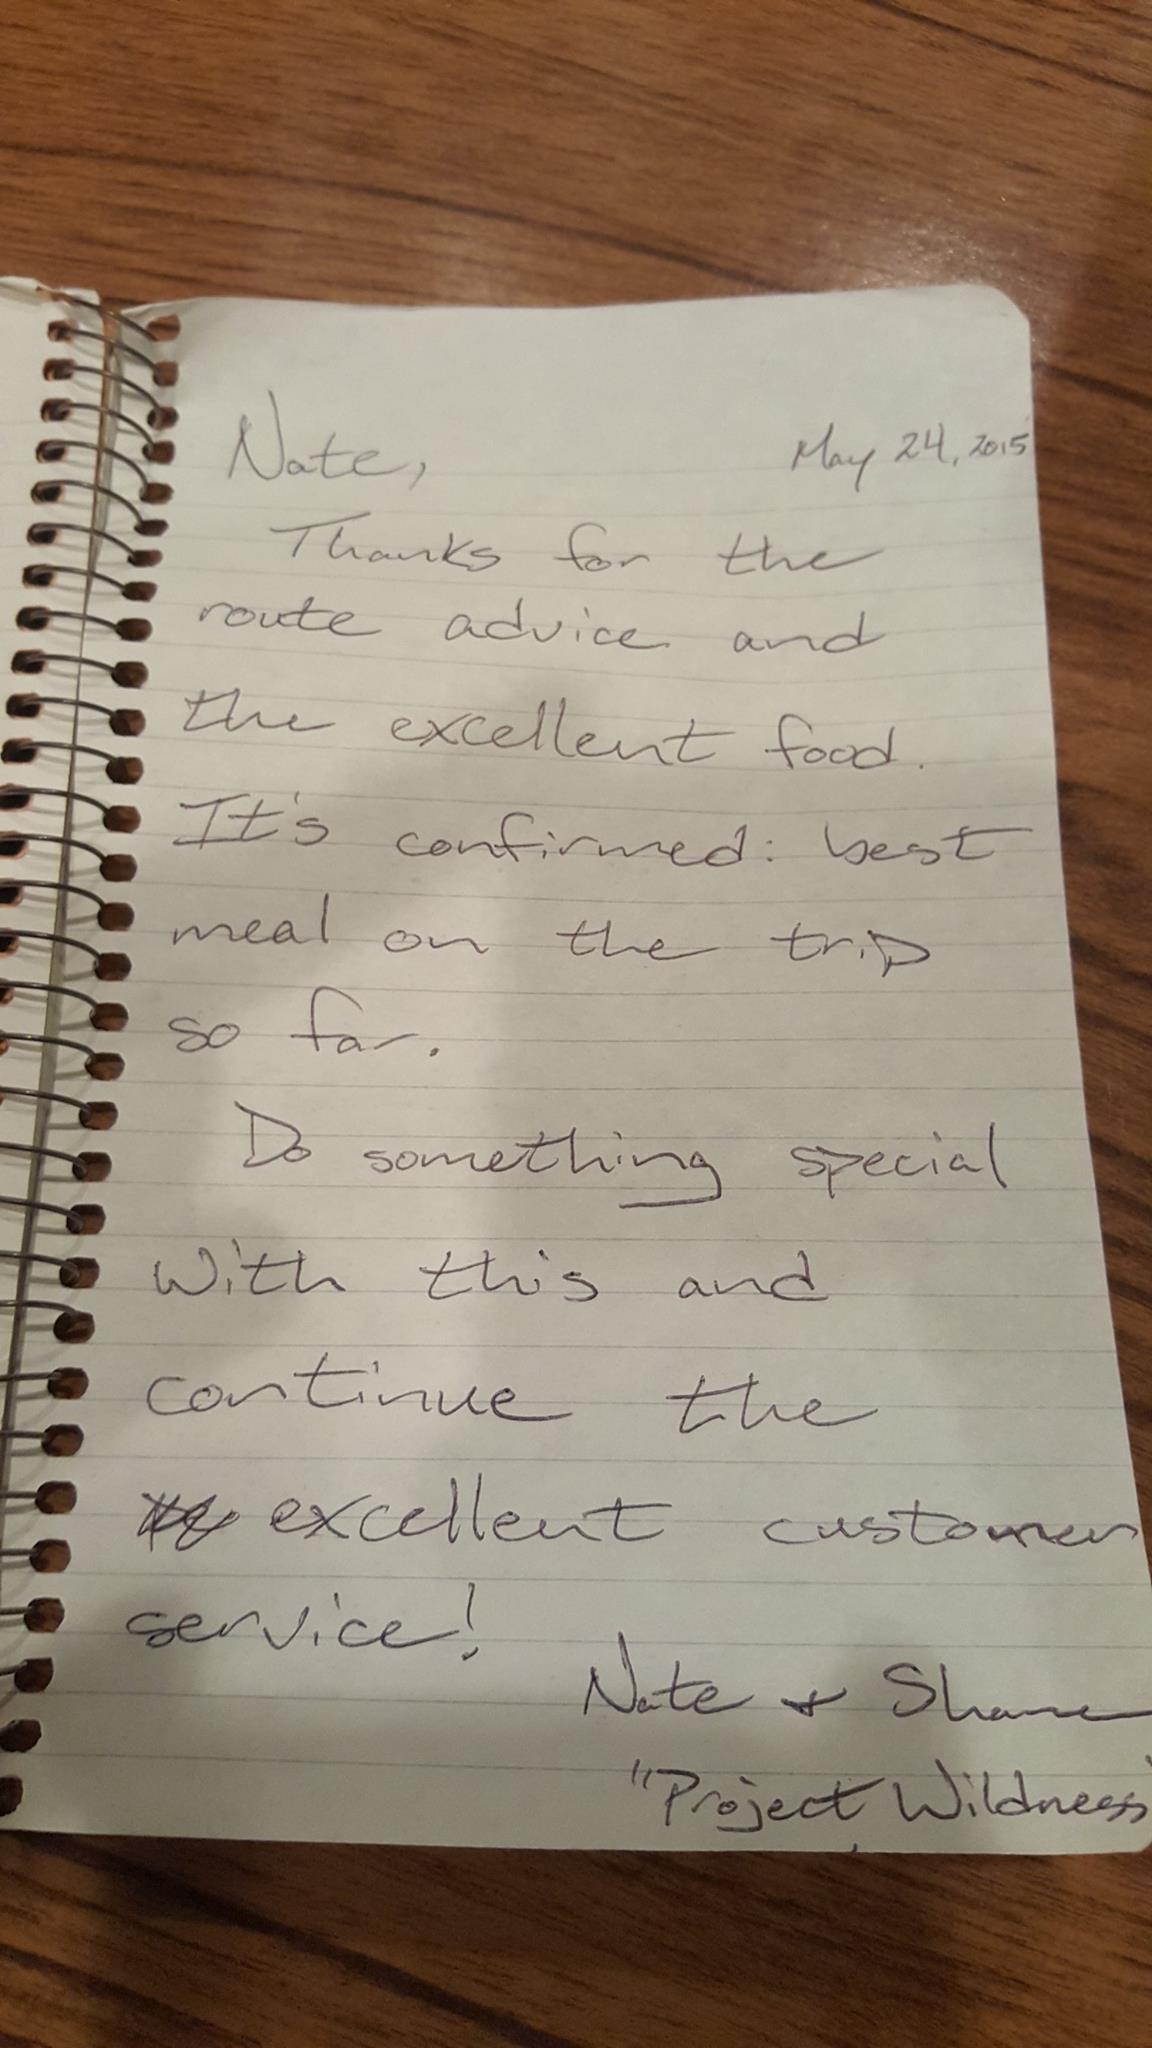 Nate, May 24, 2015
Thanks for the
route advice and
the excellent food.
It's confirmed: best
meal on the trip
so far.
Do something special
with this and
continue the
excellent customer
service!
Nate + Shane
"Project Wildness"